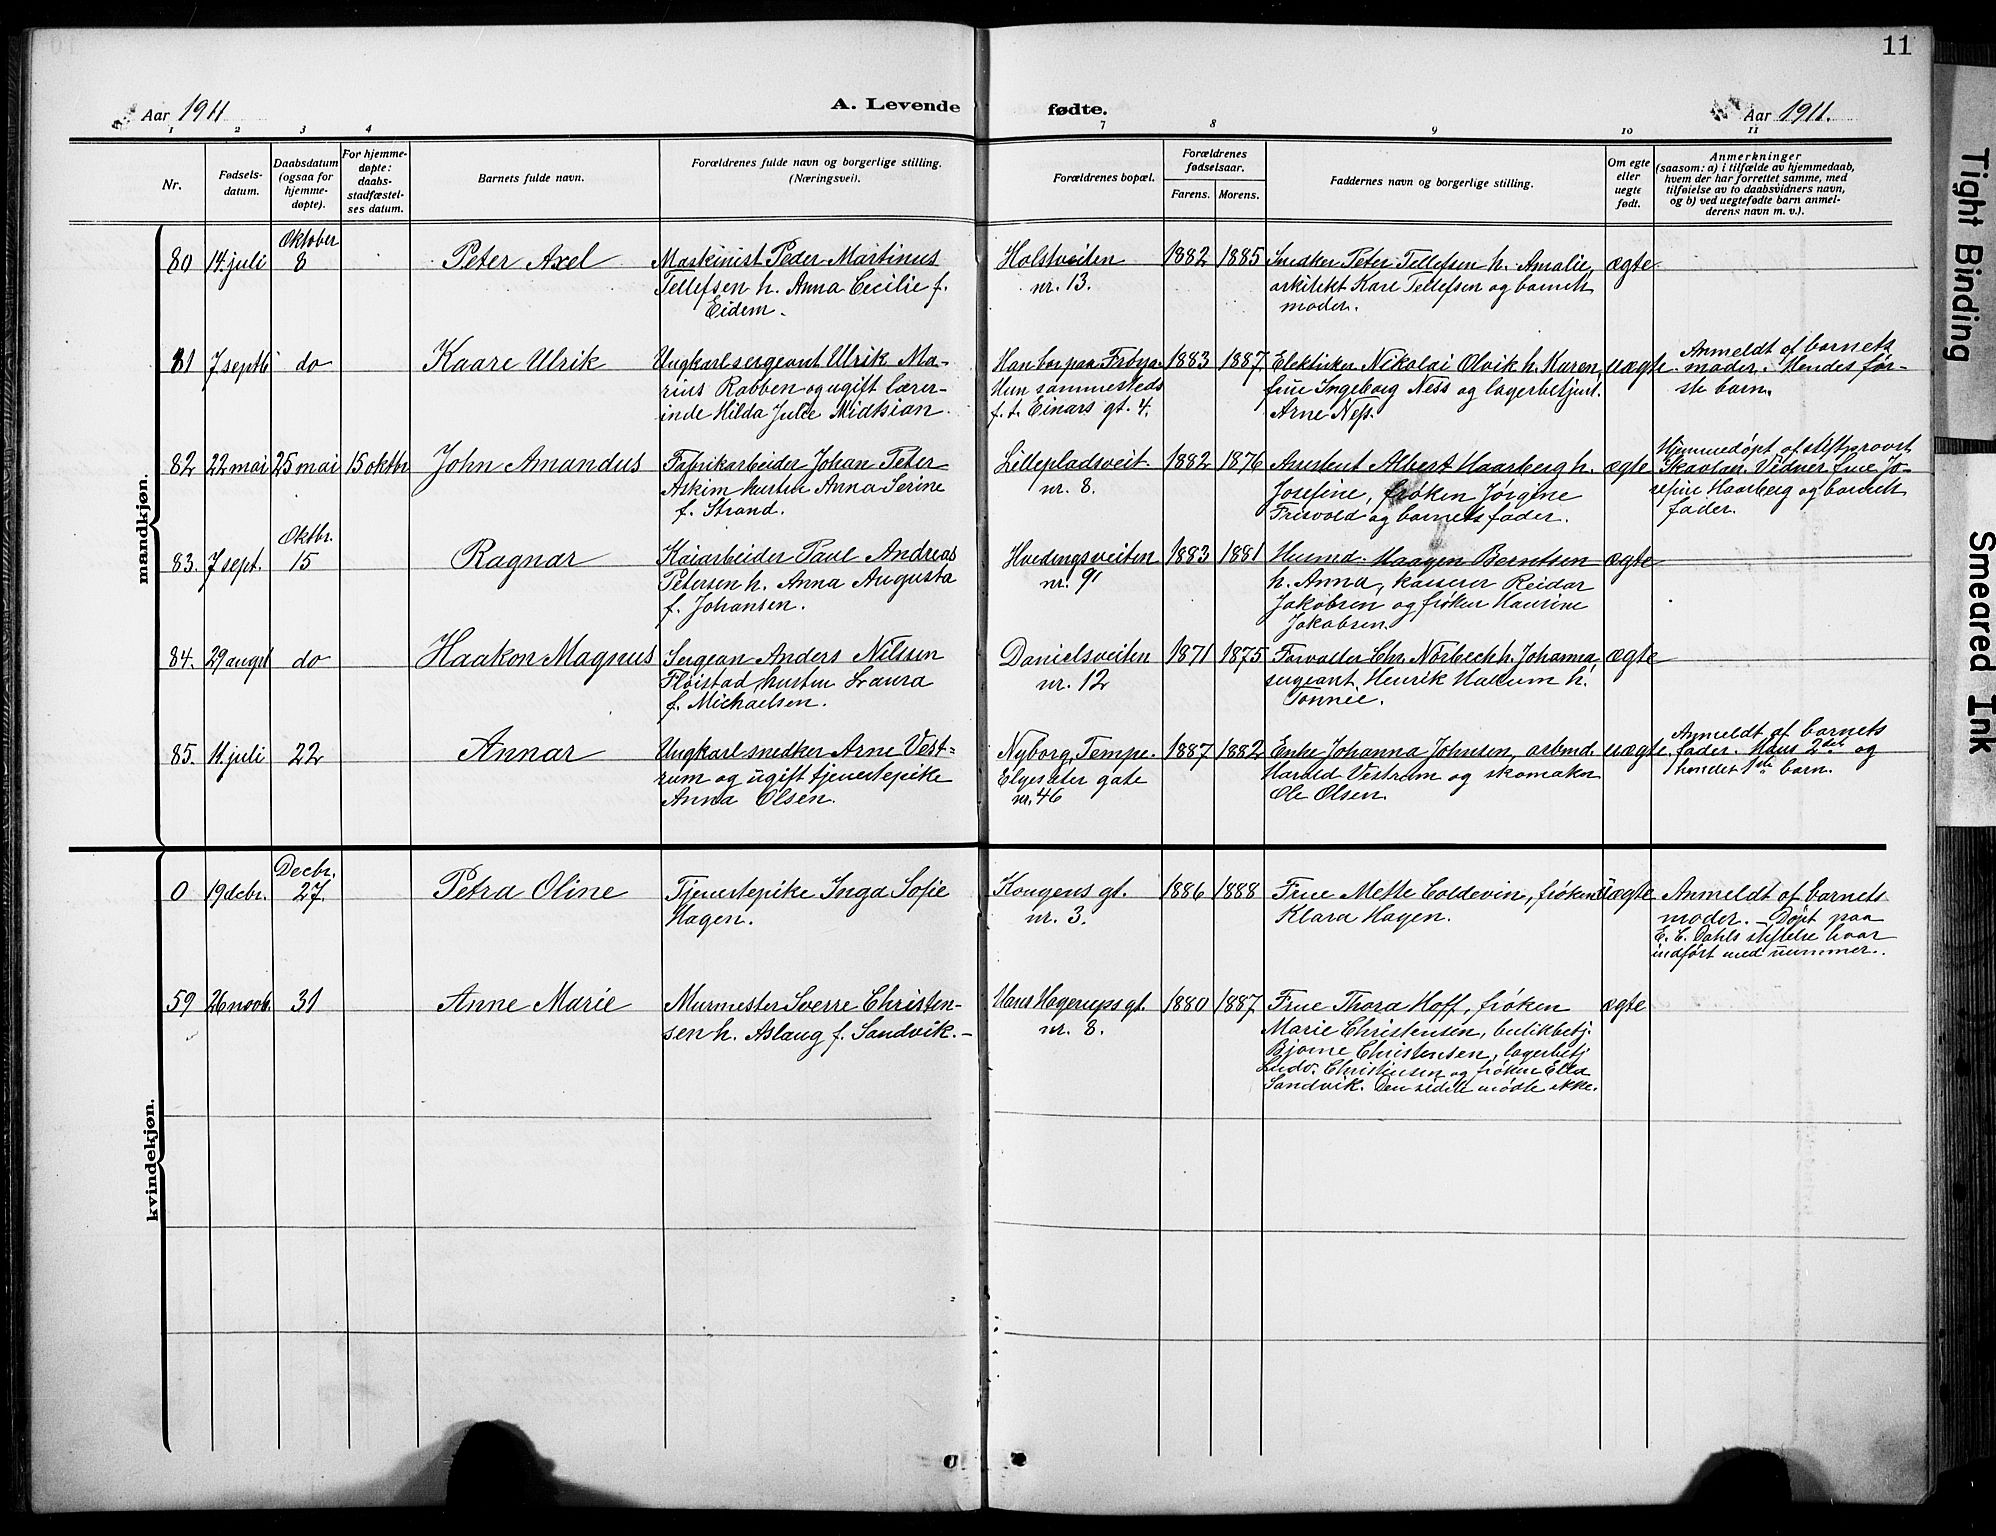 11
Aar 1911
A. Levende
fødte.
Aar 1911.
1 2 3 4 7 8 9 10 11
Nr.
Fødsels-
datum.
Daabsdatum
(ogsaa for
hjemme-
døpte).
For hjemme-
døpte:
daabs-
stadfæstel-
ses datum.
Barnets fulde navn.
Forældrenes fulde navn og borgerlige stilling.
(Næringsvei).
Forældrenes bopæl.
Forældrenes
fødselsaar.
Farens. Morens.
Faddernes navn og borgerlige stilling.
Om egte
eller
uegte
født.
Anmerkninger
(saasom: a) i tilfælde av hjemmedaab,
hvem der har forrettet samme, med
tilføielse av to daabsvidners navn,
og b) ved uegtefødte barn anmel-
derens navn m. v.).
mandkjøn.
80 14 juli
Oktober
8
Peter Axel
Maskinist Peder Martinus
Tellefsen h. Anna Cecilie f.
Eidem.
Holstveiten
nr. 13.
1882 1885
Snedker Peter Tellefsen h. Amalie,
arkitekt Karl Tellefsen og barnets
moder.
ægte
81 7 septb do
Kaare Ulrik
Ungkarl sergeant Ulrik Ma-
rius Rabben og ugift lærer-
inde Hilda Julie
Han bor paa Frøya.
Hun sammesteds
f. t. Einars gt. 4.
1883 1887
Elektriker Nikolai Olvik h. Karen,
frue Ingeborg Ness og lagerbetjent
Arne Ness.
uægte
Anmeldt af barnets
moder. Hendes før-
ste barn.
82 22 mai 25 mai 15 oktbr
John Amandus
Fabrikarbeider Johan Peter
Askim hustru Anna Serine
f. Strand.
Lillepladsveit
nr. 8.
1882 1876
Assistent Albert Haarberg h.
Josefine, frøken Jørgine
Frisvold og barnets fader.
ægte
Hjemmedøpt af stiftsprovst
Skavlan. Vidner frue Jo-
sefine Haarberg og barnets
fader.
83. 7 sept.
Oktbr.
15
Ragnar
Kaiarbeider Paul Andreas
Petersen h. Anna Augusta
f. Johansen.
Hvedingsveiten
nr. 9
1883 1881
Haagen Berntsen
h. Anna, kasserer Reidar
Jakobsen og frøken Haurine
Jakobsen.
ægte
84. 29 augst do
Haakon Magnus
Sergean Anders Nilssen
Fløistad hustru Laura
f. Michaelsen.
Danielsveiten
nr. 12
1871 1875
Forvalter Chr. Norbech h. Johanna,
sergeant Henrik Hallum h.
Tonnie.
ægte
85. 11 juli 22
Annar
Ungkarl snedker Arne Vest-
rum og ugift tjenestepike
Anna Olsen.
Nyborg, Tempe.
Elgeseter gate
nr. 46
1887 1882
Enke Johanna Johnsen, arbmd
Harald Vestrum og skomaker
Ole Olsen.
uægte.
Anmeldt af barnets
fader. Hans 2det og
hendes 1ste barn.
kvindekjøn.
0 19 dcbr.
Decbr.
27.
Petra Oline
Tjenestepike Inga Sofie
Hagen.
Kongens gt.
nr. 3.
1886 1888
Frue Mette Coldevin, frøken
Klara Hagen.
uægte
Anmeldt af barnets
moder. – Døpt paa
E. C. Dahls stiftelse hvor
indført med nummer.
59 26 novb. 31
Anne Marie
Murmester Sverre Christen-
sen h. Aslaug f. Sandvik. –
Hans Hagerups gt.
nr. 8.
1880 1887
Frue Thora Hoff, frøken
Marie Christensen, butikbetj.
Bjarne Christensen, lagerbetj
Ludv. Christensen og frøken Ella
Sandvik. Den sidste mødte ikke.
ægte
Tight Binding
Smeared Ink